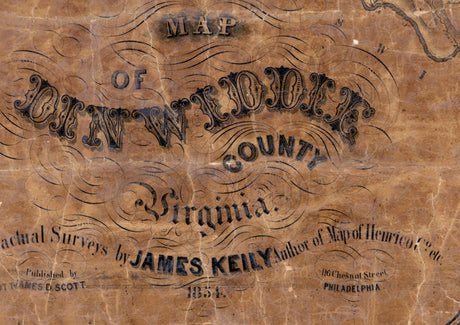 MAP
OF
DINWIDDIE
COUNTY
Virginia.
actual Surveys by JAMES KEILY Author of Map of Henrico, Co. etc.
Published by
JAMES D. SCOTT
116 Chesnut Street
PHILADELPHIA.
1854.